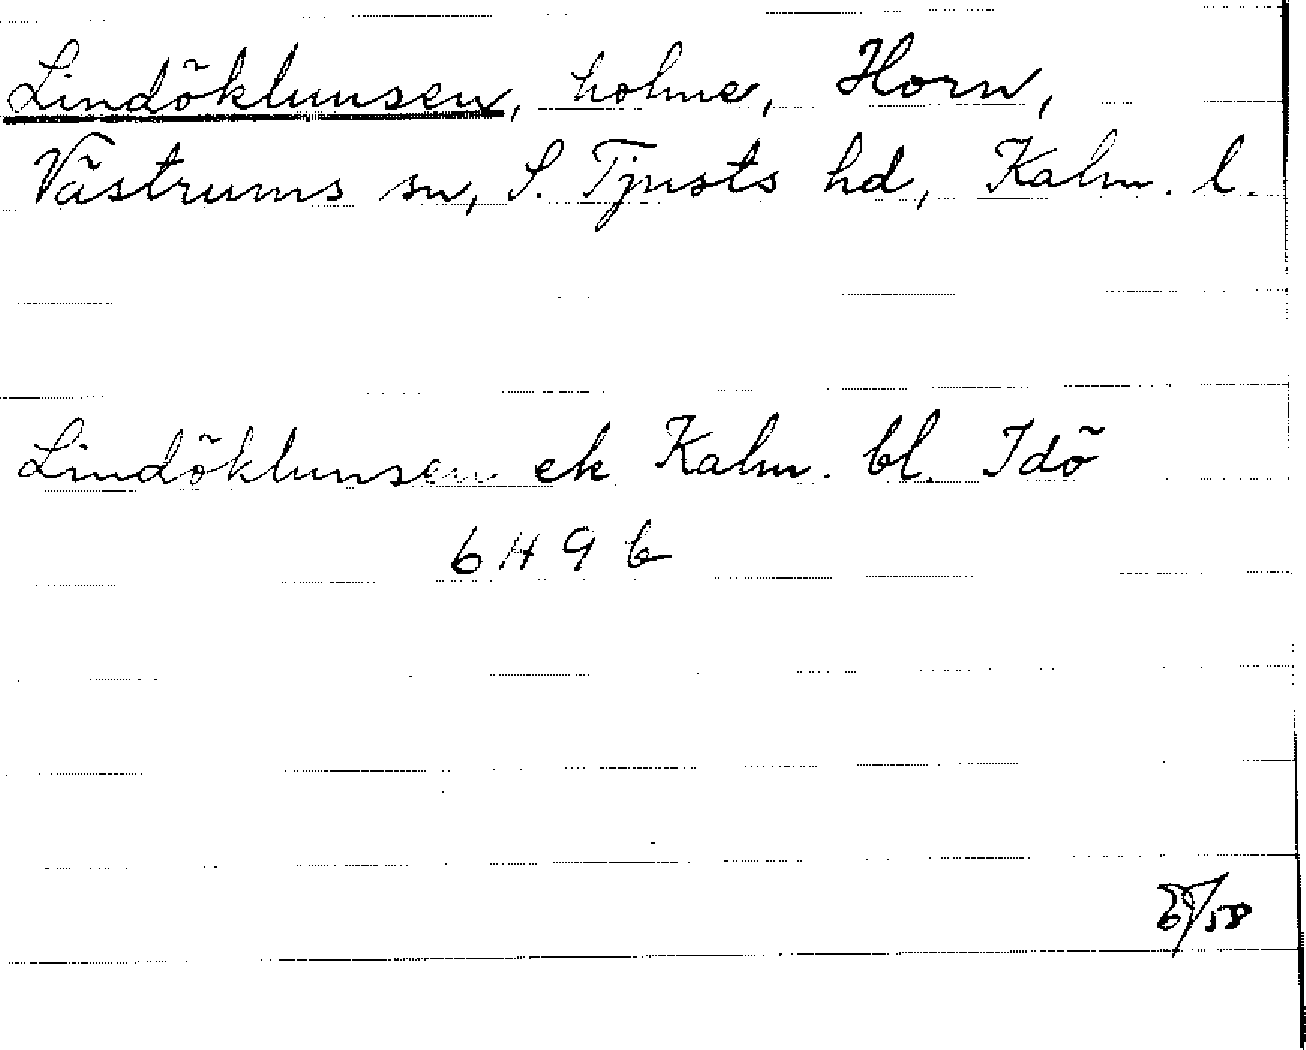 Lindöklunsen, holme, Horn,
Västrums sn, S. Tjusts hd, Kalm. l.
Lindöklunsen ek Kalm. bl. Idö
6 H 9 b